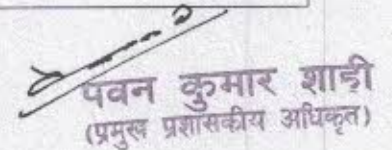 पवन कुमार शाही
(प्रमुख प्रशासकीय अधिकृत)